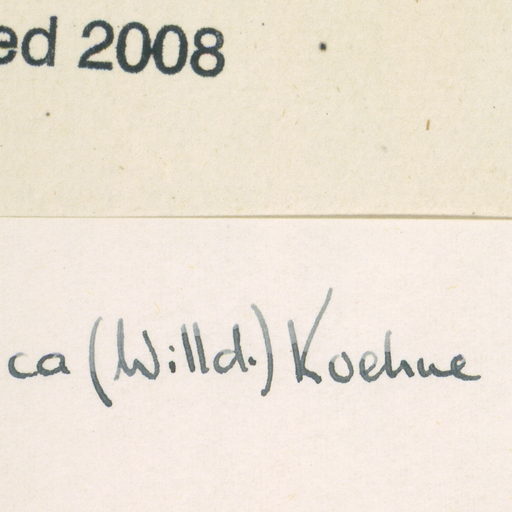 ed 2008
ca (Willd.) Koehne